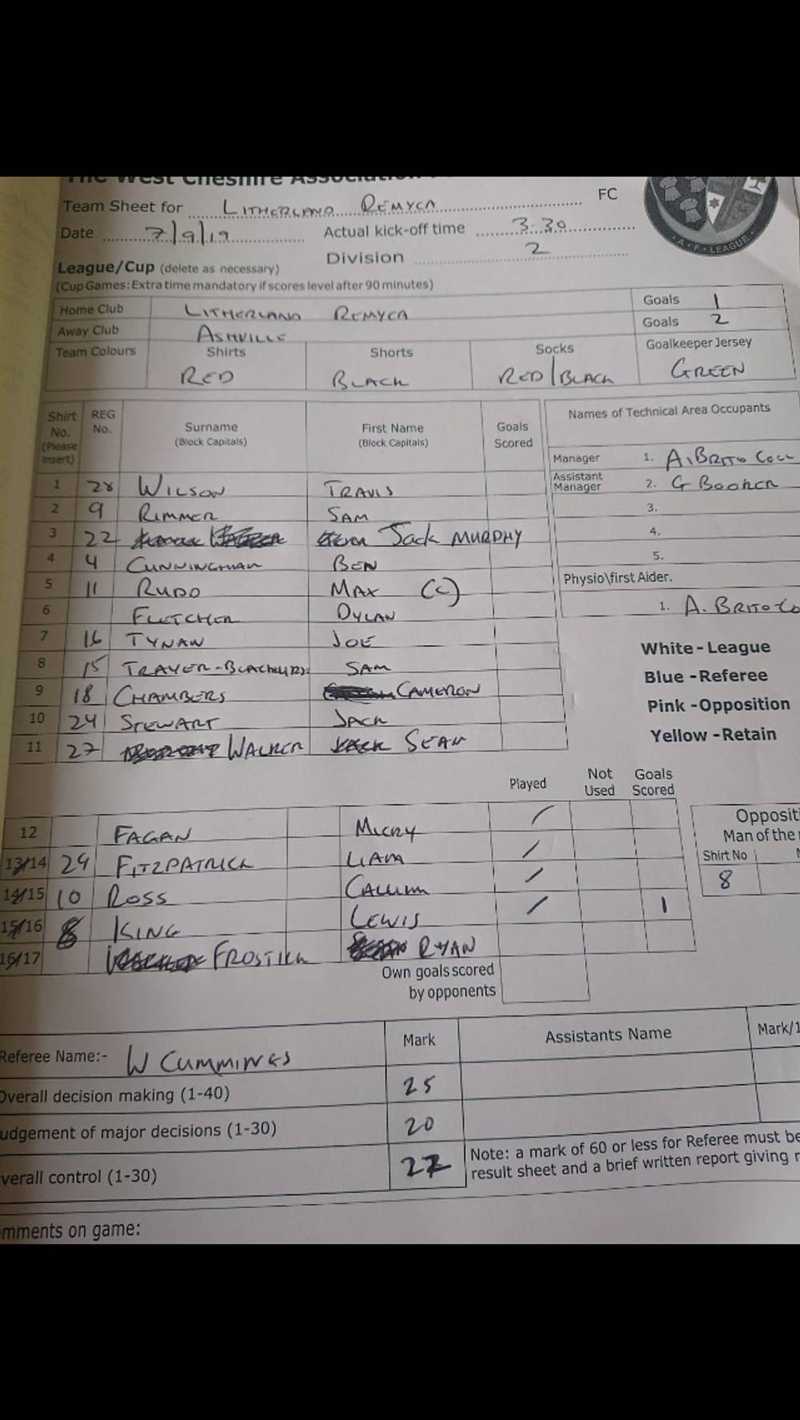 The West Cheshire Association
Team Sheet for LITHERLAND REMYCA FC
Date 7/9/19 Actual kick-off time 3.30
League/Cup (delete as necessary) Division 2
(Cup Games: Extra time mandatory if scores level after 90 minutes)
Home Club LITHERLAND REMYCA Goals 1
Away Club ASHVILLE Goals 2
Team Colours Shirts Shorts Socks Goalkeeper Jersey
RED BLACK RED/BLACK GREEN
Shirt No. (Please Insert) REG No. Surname (Block Capitals) First Name (Block Capitals) Goals Scored
Names of Technical Area Occupants
Manager 1. A. BRITO COLL
Assistant Manager 2. G BOOKER
3.
4.
5.
Physio\first Aider.
1. A. BRITO CO
1 28 WILSON TRAVIS
2 9 RIMMER SAM
3 22 Jack MURPHY
4 4 CUNNINGHAM BEN
5 11 RUDD MAX (C)
6 FLETCHER DYLAN
7 16 TYNAN JOE
8 15 TRAYER- SAM
9 18 CHAMBERS CAMERON
10 24 STEWART JACK
11 27 WALKER SEAN
White - League
Blue - Referee
Pink - Opposition
Yellow - Retain
Played Not Used Goals Scored
12 FAGAN MICKY /
13/14 29 FITZPATRICK LIAM /
14/15 10 ROSS CALLUM /
15/16 8 KING LEWIS / 1
16/17 FROSTICK RYAN
Own goals scored by opponents
Opposit
Man of the
Shirt No
8
Referee Name:- W CUMMINGS Mark Assistants Name Mark/1
Overall decision making (1-40) 25
udgement of major decisions (1-30) 20
verall control (1-30) 27
Note: a mark of 60 or less for Referee must be
result sheet and a brief written report giving
mments on game:
A.F. LEAGUE